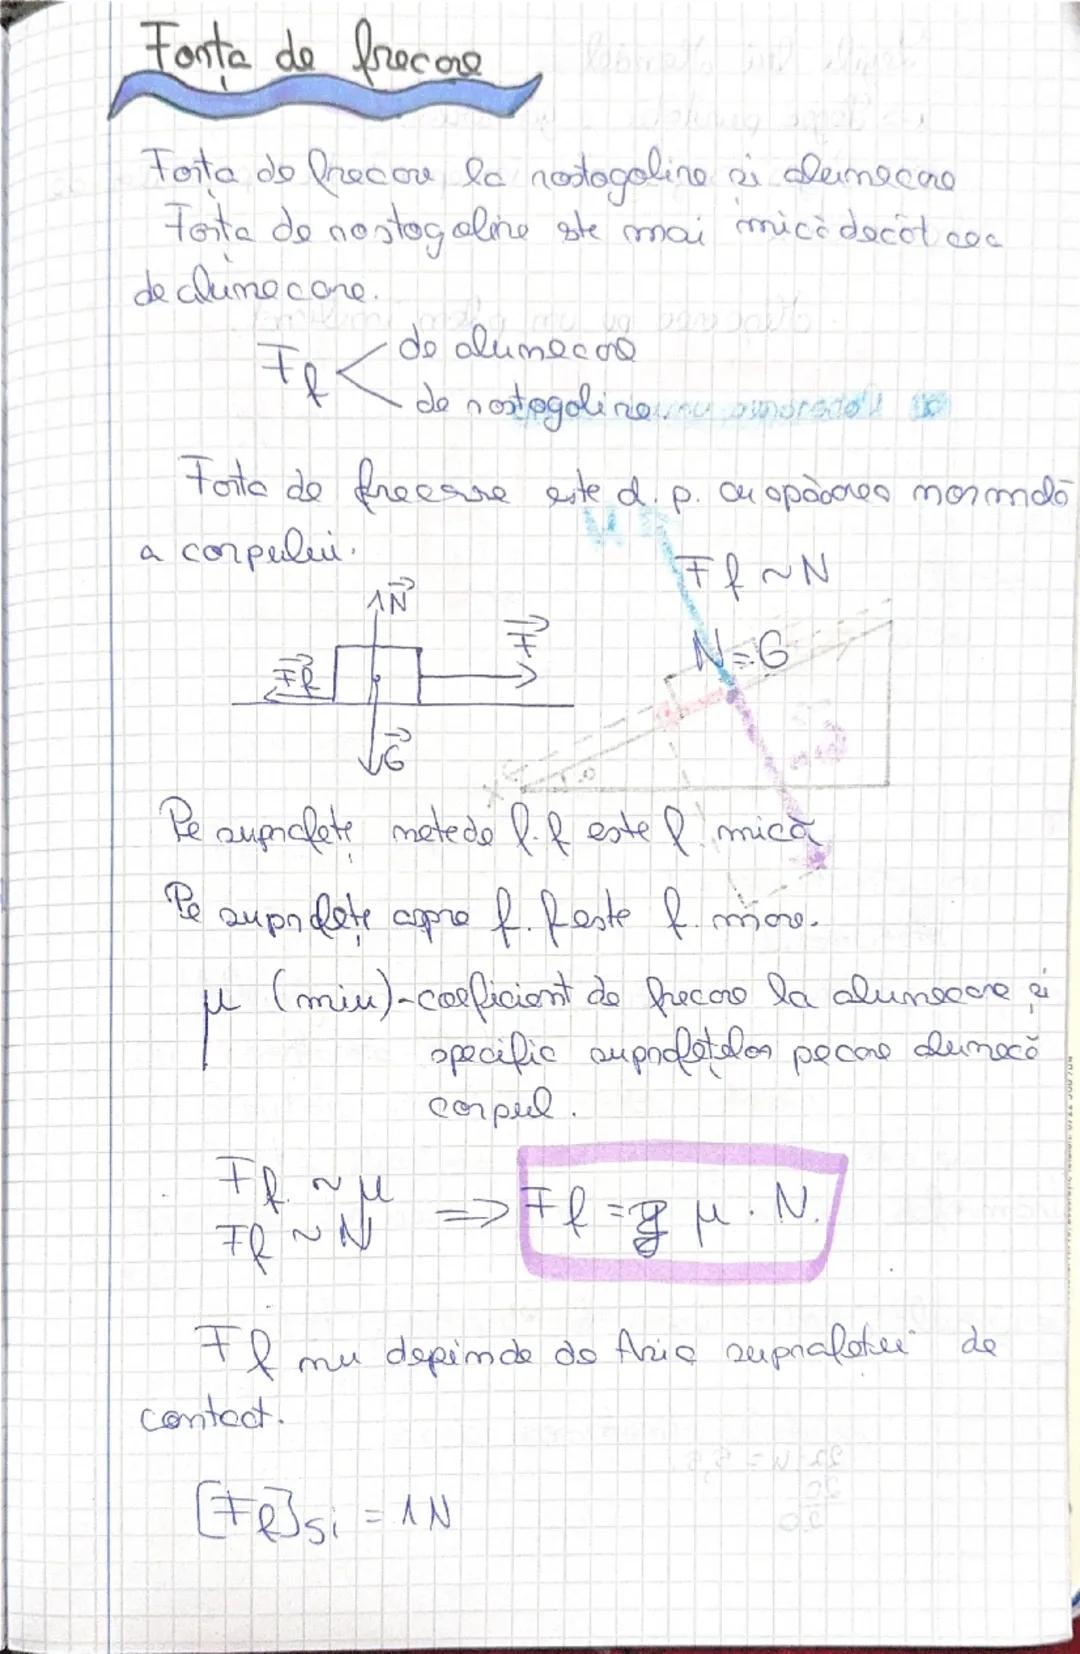 Forța de frecare
Forța de frecare la rostogolire și alunecare
Forța de rostogolire este mai mică decât cea
de alunecare.
Ff < de alunecare
de rostogolire
Forța de frecare este d. p. cu apăsarea normală
a corpului.
Ff ~ N
N
F
N = G
Ff
G
Pe suprafețe netede f.f este f. mică
Pe suprafețe aspre f. f este f. mare.
μ (miu)-coeficient de frecare la alunecare și
specific suprafețelor pe care alunecă
corpul.
Ff ~ μ
Ff ~ N
=> Ff = μ · N.
Ff nu depinde de Aria suprafeței de
contact.
[Ff]Si = 1N